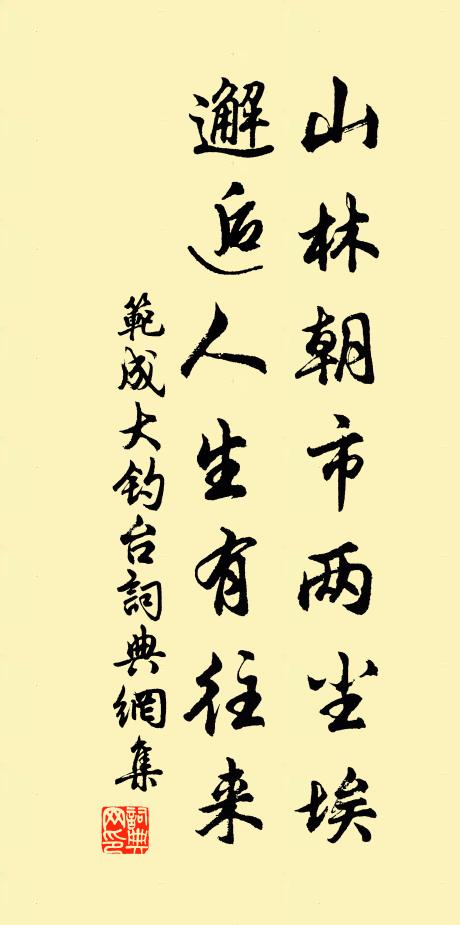 山林朝市两尘埃
邂逅人生有往来
範成大钓台詞典網集
詞典网印